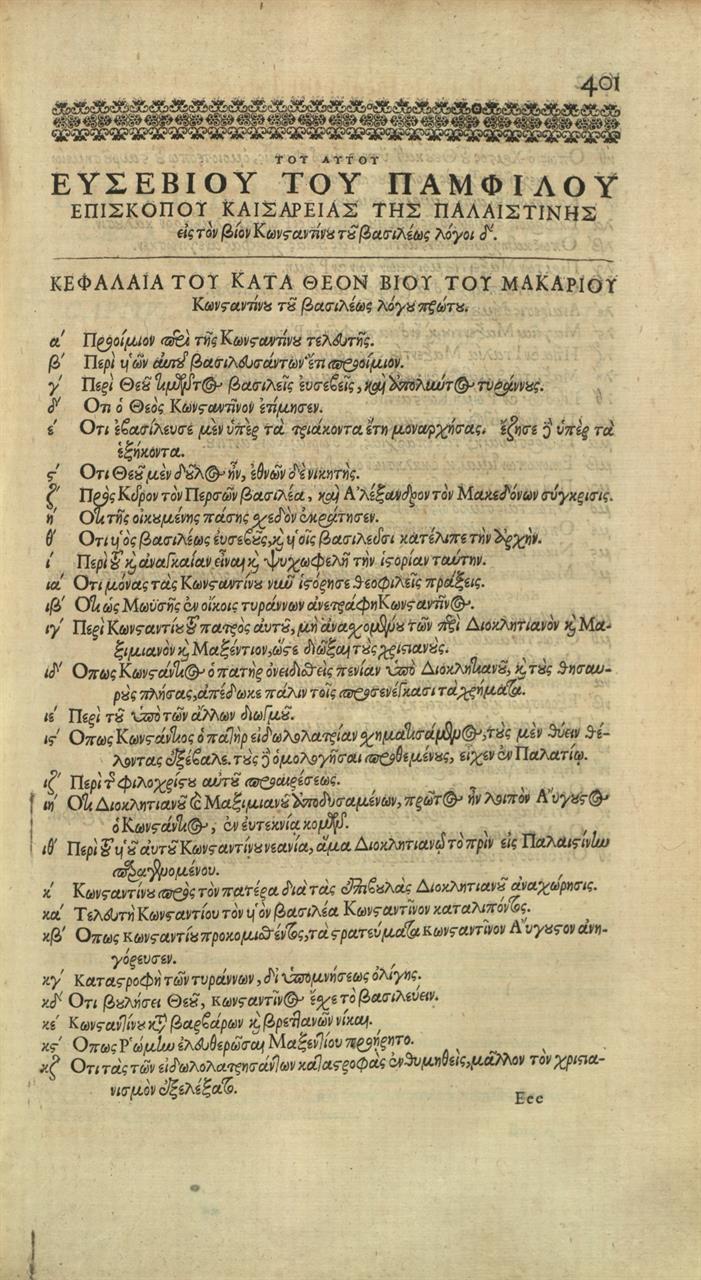 401
ΤΟΥ ΑΥΤΟΥ
ΕΥΣΕΒΙΟΥ ΤΟΥ ΠΑΜΦΙΛΟΥ
ΕΠΙΣΚΟΠΟΥ ΚΑΙΣΑΡΕΙΑΣ ΤΗΣ ΠΑΛΑΙΣΤΙΝΗΣ
εἰς τὸν βίον Κωνσταντίνου τοῦ βασιλέως λόγοι δ΄.
ΚΕΦΑΛΑΙΑ ΤΟΥ ΚΑΤΑ ΘΕΟΝ ΒΙΟΥ ΤΟΥ ΜΑΚΑΡΙΟΥ
Κωνσταντίνου τοῦ βασιλέως λόγου πρώτου.
α΄ Προοίμιον περὶ τῆς Κωνσταντίνου τελευτῆς.
β΄ Περὶ υἱῶν αὐτοῦ βασιλευσάντων ἔτι προοίμιον.
γ΄ Περὶ Θεοῦ τιμῶντος βασιλεῖς εὐσεβεῖς, καὶ ἀπολλύντος τυράννους.
δ΄ Οτι ὁ Θεὸς Κωνσταντῖνον ἐτίμησεν.
ε΄ Οτι ἐβασίλευσε μὲν ὑπὲρ τὰ τριάκοντα ἔτη μοναρχήσας. ἔζησε δὲ ὑπὲρ τὰ
ἑξήκοντα.
ς΄ Οτι Θεοῦ μὲν δοῦλος ἦν, ἐθνῶν δὲ νικητής.
ζ΄ Πρὸς Κῦρον τὸν Περσῶν βασιλέα, καὶ Αλέξανδρον τὸν Μακεδόνων σύγκρισις.
η΄ Οτι τῆς οἰκουμένης πάσης σχεδὸν ἐκράτησεν.
θ΄ Οτι υἱὸς βασιλέως εὐσεβοῦς, καὶ υἱοῖς βασιλεῦσι κατέλιπε τὴν ἀρχήν.
ι΄ Περὶ τοῦ καὶ ἀναγκαίαν εἶναι καὶ ψυχωφελῆ τὴν ἱστορίαν ταύτην.
ια΄ Οτι μόνας τὰς Κωνσταντίνου νῦν ἱστόρησε θεοφιλεῖς πράξεις.
ιβ΄ Οτι ὡς Μωϋσῆς ἐν οἴκοις τυράννων ἀνετράφη Κωνσταντῖνος.
ιγ΄ Περὶ Κωνσταντίου τοῦ πατρὸς αὐτοῦ, μὴ ἀνασχομένου τῶν περὶ Διοκλητιανὸν καὶ Μα-
ξιμιανὸν καὶ Μαξέντιον, ὥστε διῶξαι τοὺς χριστιανούς.
ιδ΄ Οπως Κωνστάντιος ὁ πατὴρ ὀνειδισθεὶς πενίαν ὑπὸ Διοκλητιανοῦ, καὶ τοὺς θησαυ-
ροὺς πλήσας, ἀπέδωκε πάλιν τοῖς προσενέγκασι τὰ χρήματα.
ιε΄ Περὶ τοῦ ὑπὸ τῶν ἄλλων διωγμοῦ.
ις΄ Οπως Κωνστάντιος ὁ πατὴρ εἰδωλολατρίαν σχηματισάμενος, τοὺς μὲν θύειν θέ-
λοντας ἐξέβαλε. τοὺς δὲ ὁμολογῆσαι προθεμένους, εἶχεν ἐν Παλατίῳ.
ιζ΄ Περὶ τῆς φιλοχρίστου αὐτοῦ προαιρέσεως.
ιη΄ Οτι Διοκλητιανοῦ καὶ Μαξιμιανοῦ ἀποδυσαμένων, πρῶτος ἦν λοιπὸν Αὔγουστος
ὁ Κωνστάντιος, ἐν εὐτεκνίᾳ κομῶν.
ιθ΄ Περὶ τοῦ υἱοῦ αὐτοῦ Κωνσταντίνου νεανία, ἅμα Διοκλητιανῷ τὸ πρὶν εἰς Παλαιστίνην
παραγενομένου.
κ΄ Κωνσταντίνου πρὸς τὸν πατέρα διὰ τὰς ἐπιβουλὰς Διοκλητιανοῦ ἀναχώρησις.
κα΄ Τελευτὴ Κωνσταντίου τὸν υἱὸν βασιλέα Κωνσταντῖνον καταλιπόντος.
κβ΄ Οπως Κωνσταντίου προκομισθέντος, τὰ στρατεύματα Κωνσταντῖνον Αὔγουστον ἀνη-
γόρευσεν.
κγ΄ Καταστροφὴ τῶν τυράννων, δι' ὑπομνήσεως ὀλίγης.
κδ΄ Οτι βουλήσει Θεοῦ, Κωνσταντῖνος ἔσχε τὸ βασιλεύειν.
κε΄ Κωνσταντίνου κατὰ βαρβάρων καὶ Βρεττανῶν νίκαι.
κς΄ Οπως Ρώμην ἐλευθερῶσαι Μαξεντίου προῄρητο.
κζ΄ Οτι τὰς τῶν εἰδωλολατρησάντων καταστροφὰς ἐνθυμηθεὶς, μᾶλλον τὸν χριστια-
νισμὸν ἐξελέξατο.
Eee